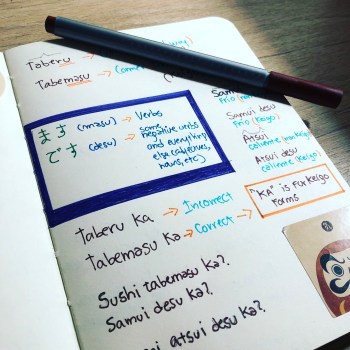 Taberu →
Tabemasu →
ます (masu) → Verbs
です (desu) → some
negative verbs
and everything
else (adjectives,
nouns, etc)
Samui
frio (no
Samui desu
frio (Keigo)
Atsui
caliente
Atsui desu
caliente (Keigo)
Taberu ka → Incorrect
Tabemasu ka → Correct →
"KA" is for Keigo
forms
Sushi tabemasu ka?.
Samui desu ka?.
atsui desu ka?.